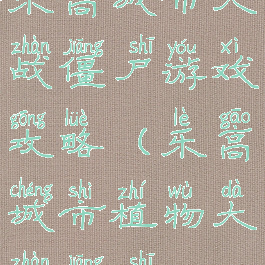 乐高城市植物大
zhàn jiāng shī yóu xì
战僵尸游戏
gōng lüè lè gāo
攻略（乐高
chéng shì zhí wù dà
城市植物大
zhàn jiāng shī